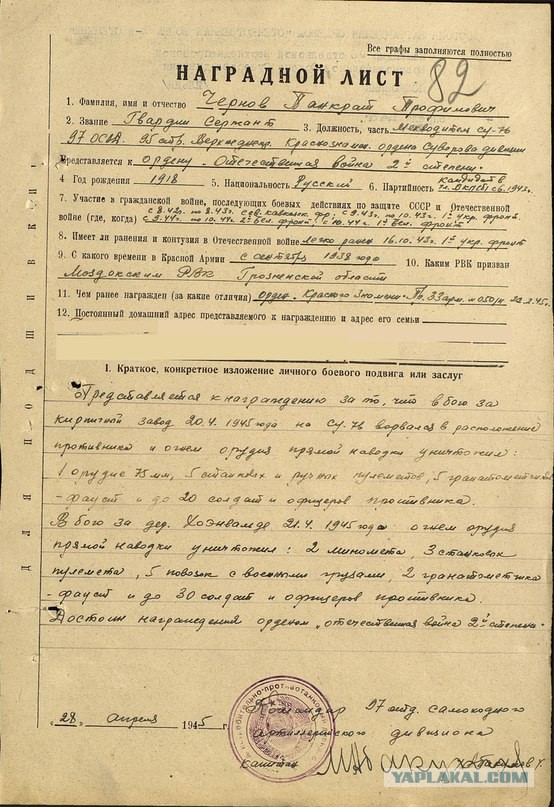 Все графы заполняются полностью
НАГРАДНОЙ ЛИСТ 82
1. Фамилия, имя и отчество Чернов Панкрат Трофимович
2. Звание Гвардии Сержант 3. Должность, часть Мехводитель СУ-76
97 ОСАД 95 стр. Верхнеднепр. Краснознам. ордена Суворова дивизии
Представляется к ордену - Отечественная война 2й степени.
4 Год рождения 1918 5. Национальность Русский 6. Партийность Кандидат в чл. ВКП(б) с 6.1943г.
7. Участие в гражданской войне, последующих боевых действиях по защите СССР и Отечественной
войне (где, когда) с 8.42г. по 8.43г. Сев. Кавказск. фр; с 9.43г. по 10.43г. 1й укр. фронт.
с 9.44г. по 10.44г. 2й бел. фронт, с 10.44г. 1й бел. фронт.
8. Имеет ли ранения и контузии в Отечественной войне легко ранен 16.10.43г. 1й укр. фронт
9. С какого времени в Красной Армии с сентября 1938 года 10. Каким РВК призван
Моздокским РВК Грозненской области
11. Чем ранее награжден (за какие отличия) орден „Красное Знамя“ Пр. 33 арм. № 050/н 22.2.45г.
12. Постоянный домашний адрес представляемого к награждению и адрес его семьи
I. Краткое, конкретное изложение личного боевого подвига или заслуг
Представляется к награждению за то, что в бою за
кирпичный завод 20.4.1945 года на СУ-76 ворвался в расположение
противника и огнем орудия прямой наводки уничтожил:
1 орудие 75 мм, 5 станковых и ручных пулеметов, 5 гранатометчиков
-фауст и до 20 солдат и офицеров противника.
В бою за дер. Хоэнвальде 21.4.1945 года огнем орудия
прямой наводки уничтожил: 2 миномета, 3 станковых
пулемета, 5 повозок с военными грузами, 2 гранатометчика
-фауст и до 30 солдат и офицеров противника.
Достоин награждения орденом „отечественная война 2й степени“
ДЛЯ ПОДШИВКИ
„28“ апреля 1945 г.
Командир 97 отд. самоходного
артиллерийского дивизиона
капитан
YAPLAKAL.COM